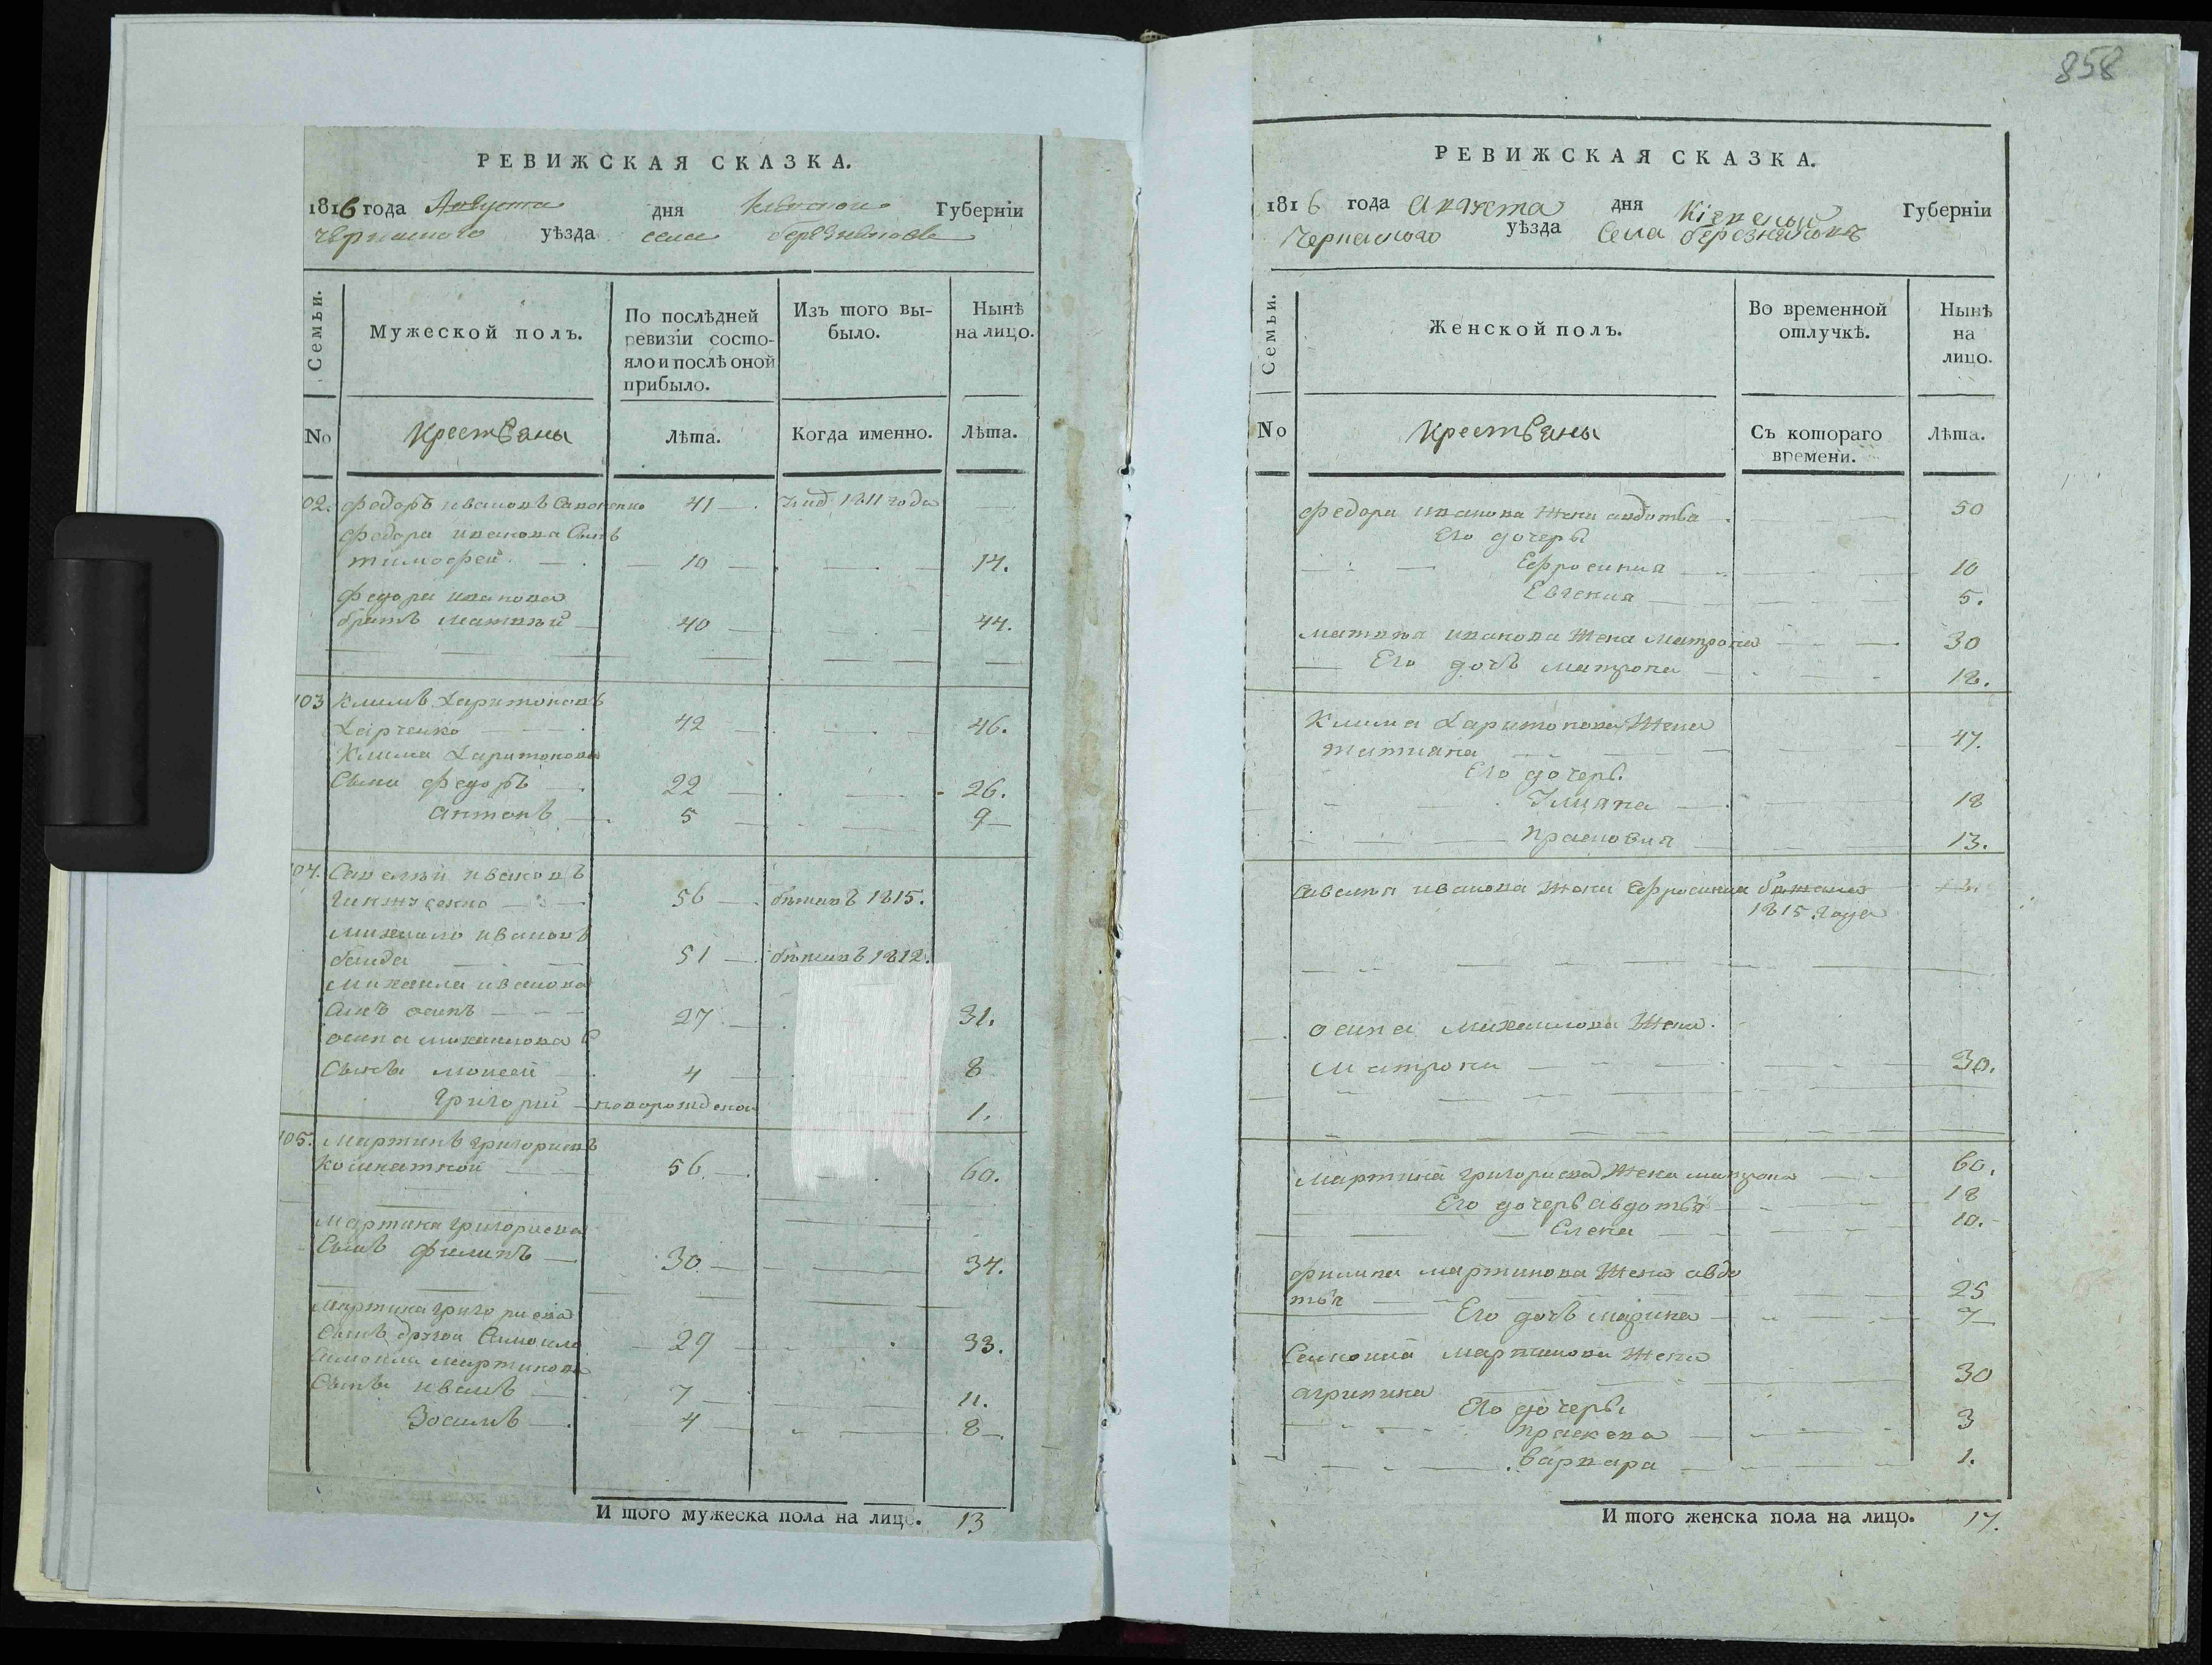 858
РЕВИЖСКАЯ СКАЗКА.
1816 года Августа дня Киевской Губерніи
Черкаского уѣзда села березняковъ
Семьи.
Мужеской полъ.
По послѣдней ревизіи состо-
яло и послѣ оной прибыло.
Изъ того вы-
было.
Нынѣ
на лицо.
No
Крестьяны
Лѣта.
Когда именно.
Лѣта.
102. Федоръ ивановъ 41 1811 года
Федора иванова Сынъ
тимофей 10 14.
Федора иванова
братъ матвѣй 40 44.
103 Климъ Харитоновъ
Харченко 42 46.
Клима Харитонова
Сыны Федоръ 22 26.
антонъ 5 9
104. Савелѣй ивановъ
56 бѣжавъ 1815.
михайло ивановъ
51 бѣжавъ 1812.
михайла иванова
Синъ осипъ 27 31.
осипа михайлова
Сынъ моисей 4 8
григорий новорожденой 1.
105. Мартинъ григориевъ
56 60.
Мартина григориева
Сынъ филипъ 30 34.
Мартина григориева
Сынъ другой Самоила 29 33.
Самоила мартинова
Сынъ иванъ 7 11.
Зосимъ 4 8
И того мужеска пола на лицо. 13
РЕВИЖСКАЯ СКАЗКА.
1816 года Августа дня Кіевской Губерніи
Черкаского уѣзда Села березняковъ
Семьи.
Женской полъ.
Во временной
отлучкѣ.
Нынѣ
на
лицо.
No
Крестьяны
Съ котораго
времени.
Лѣта.
Федора иванова Жена авдотья 50
Его дочеры
Ефросиния 10
Евгения 5.
матвѣя иванова Жена Матрона 30
Его дочъ матрона 12.
Клима Харитонова Жена
татияна 47.
Его дочеры
Улияна 18
Прасковия 13.
Савелѣя иванова Жена Ефросиния бѣжала
1815 года
осипа михайлова Жена
Матрона 30.
Мартина григориева Жена матрона 60.
Его дочеръ авдотья 18
Елена 10.
филипа мартинова Жена авдо
тья 25
Его дочъ марина 7
Самоила мартинова Жена
агрипина 30
Его дочеры
Праскева 3
варвара 1.
И того женска пола на лицо. 17.